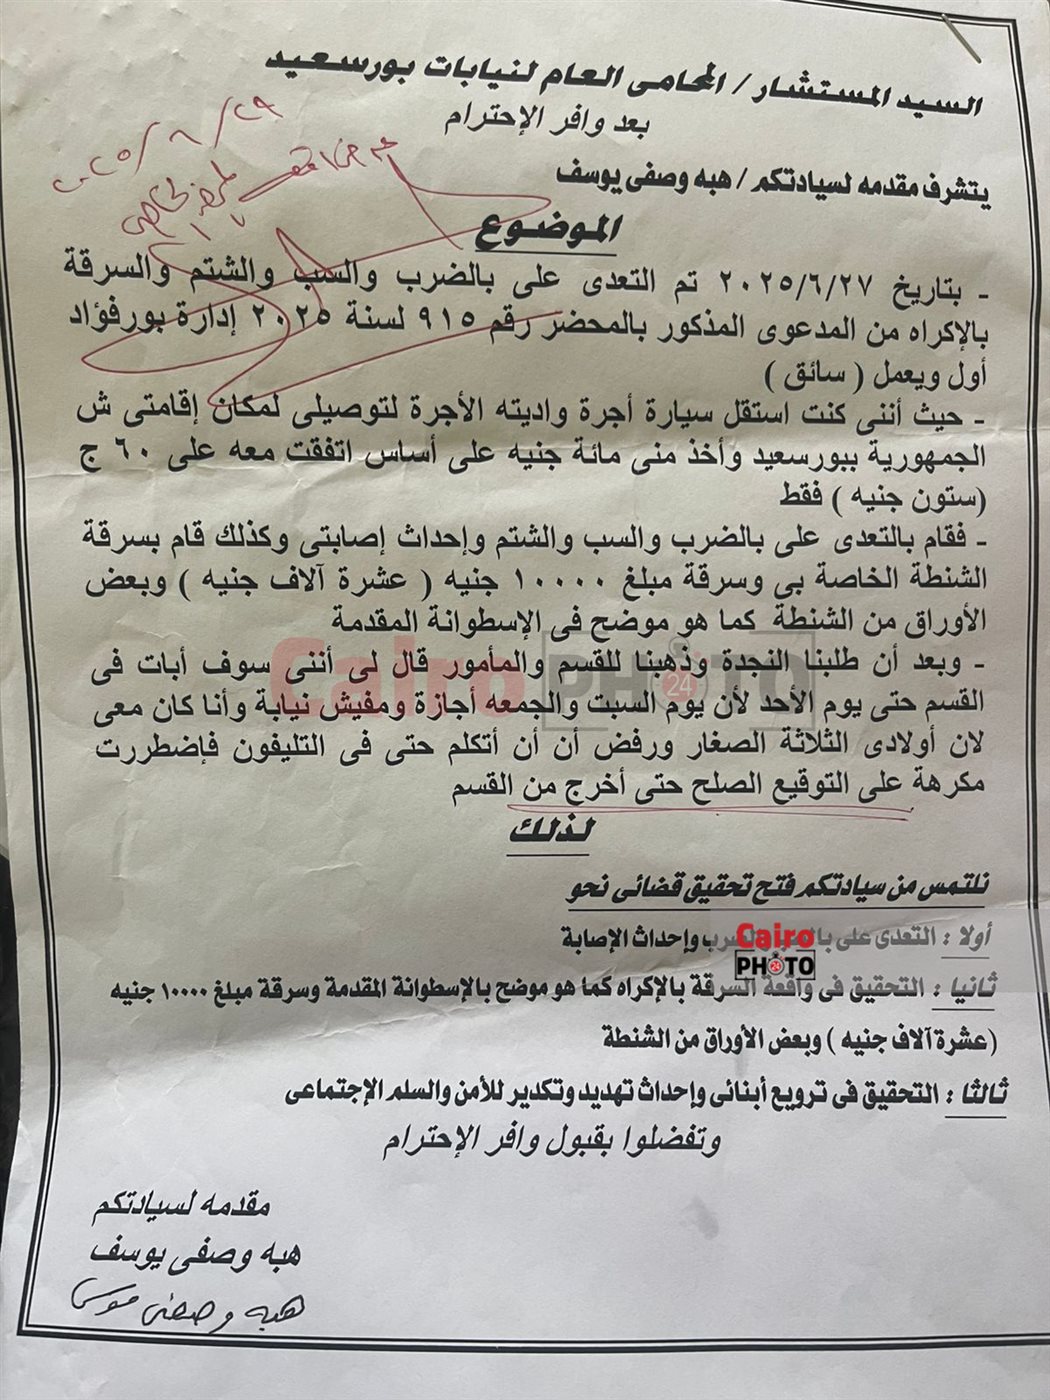 السيد المستشار / المحامى العام لنيابات بورسعيد
بعد وافر الإحترام
٢٠٢٥/٦/٢٩
يتشرف مقدمه لسيادتكم / هبه وصفى يوسف
الموضوع
- بتاريخ ٢٠٢٥/٦/٢٧ تم التعدى على بالضرب والسب والشتم والسرقة
بالإكراه من المدعوى المذكور بالمحضر رقم ٩١٥ لسنة ٢٠٢٥ إدارة بورفؤاد
أول ويعمل ( سائق )
- حيث أننى كنت استقل سيارة أجرة واديته الأجرة لتوصيلى لمكان إقامتى ش
الجمهورية ببورسعيد وأخذ منى مائة جنيه على أساس اتفقت معه على ٦٠ ج
(ستون جنيه ) فقط
- فقام بالتعدى على بالضرب والسب والشتم وإحداث إصابتى وكذلك قام بسرقة
الشنطة الخاصة بى وسرقة مبلغ ١٠٠٠٠ جنيه ( عشرة آلاف جنيه ) وبعض
الأوراق من الشنطة كما هو موضح فى الإسطوانة المقدمة
- وبعد أن طلبنا النجدة وذهبنا للقسم والمأمور قال لى أننى سوف أبات فى
القسم حتى يوم الأحد لأن يوم السبت والجمعه أجازة ومفيش نيابة وأنا كان معى
لان أولادى الثلاثة الصغار ورفض أن أن أتكلم حتى فى التليفون فإضطررت
مكرهة على التوقيع الصلح حتى أخرج من القسم
Cairo PHOTO 24
لذلك
نلتمس من سيادتكم فتح تحقيق قضائى نحو
أولا : التعدى على وإحداث الإصابة
Cairo PHOTO 24
ثانيا : التحقيق فى واقعة السرقة بالإكراه كما هو موضح بالإسطوانة المقدمة وسرقة مبلغ ١٠٠٠٠ جنيه
(عشرة آلاف جنيه ) وبعض الأوراق من الشنطة
ثالثا : التحقيق فى ترويع أبنائى وإحداث تهديد وتكدير للأمن والسلم الإجتماعى
وتفضلوا بقبول وافر الإحترام
مقدمه لسيادتكم
هبه وصفى يوسف
هبه وصفى